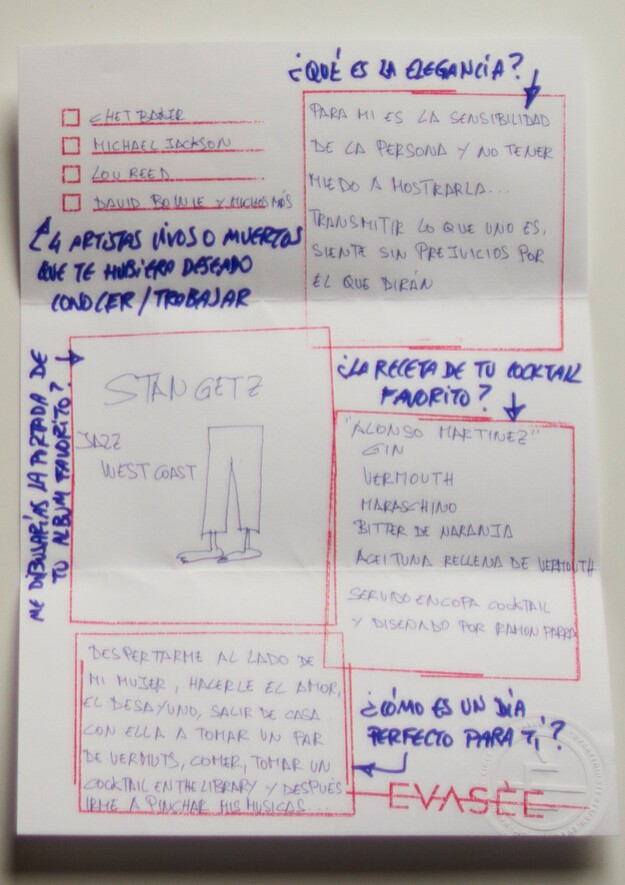 ¿QUÉ ES LA ELEGANCIA?
PARA MI ES LA SENSIBILIDAD
DE LA PERSONA Y NO TENER
MIEDO A MOSTRARLA...
TRANSMITIR LO QUE UNO ES,
SIENTE SIN PREJUICIOS POR
EL QUE DIRÁN
CHET BAKER
MICHAEL JACKSON
LOU REED
DAVID BOWIE Y MUCHOS MÁS
4 ARTISTAS VIVOS O MUERTOS
QUE TE HUBIERA DESEADO
CONOCER/TROBAJAR
ME DIBUJARÍAS LA PORTADA DE
TU ALBUM FAVORITO?
STAN GETZ
JAZZ
WEST COAST
¿LA RECETA DE TU COCKTAIL
FAVORITO?
"ALONSO MARTINEZ"
GIN
VERMOUTH
MARASCHINO
BITTER DE NARANJA
ACEITUNA RELLENA DE VERMOUTH
SERVIDO EN COPA COCKTAIL
Y DISEÑADO POR RAMON PARRA
DESPERTARME AL LADO DE
MI MUJER, HACERLE EL AMOR,
EL DESAYUNO, SALIR DE CASA
CON ELLA A TOMAR UN PAR
DE VERMUTS, COMER, TOMAR UN
COCKTAIL EN THE LIBRARY Y DESPUÉS
IRME A PINCHAR MIS MUSICAS...
¿CÓMO ES UN DÍA
PERFECTO PARA TÍ?
EVASÉE